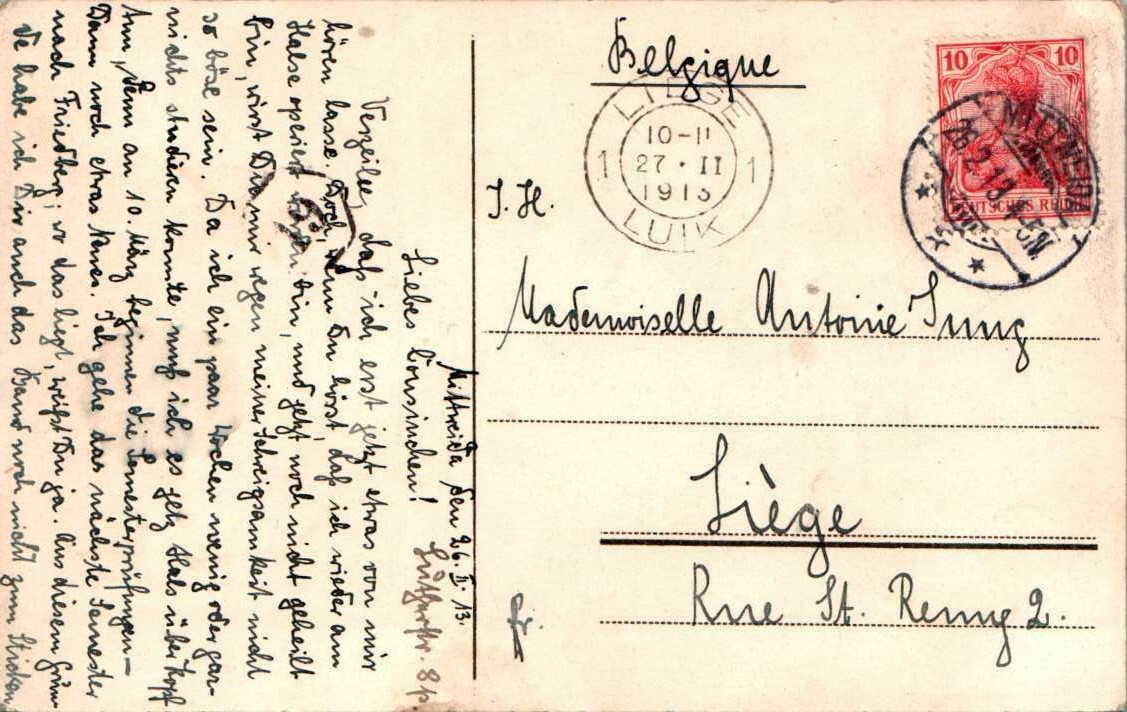 Belgique
10 10
DEUTSCHES REICH
MITTWEIDA
26.2.13
LIEGE
10-11
1 27 · II 1
1913
LUIK
J. H.
Mademoiselle Antoinie Jung
Liège
Rue St. Remy 2.
fr.
Mittweida den 26. II. 13.
Liebes Cousinchen!
Verzeihe, daß ich erst jetzt etwas von mir
hören lasse. Doch, wenn Du hörst, daß ich wieder am
Halse operiert bin, und jetzt noch nicht geheilt
bin, wirst Du mir wegen meiner Schweigsamkeit nicht
so böse sein. Da ich ein paar Wochen wenig oder gar-
nichts studieren konnte, muß ich es jetz Hals über Kopf
tun, denn am 10. März beginnen die Semesterprüfungen -
Dann noch etwas Neues. Ich gehe das nächste Semester
nach Friedberg; wo das liegt, weißt Du ja. Aus diesem Grun-
de habe ich Dir auch das Band noch nicht zum Sticken